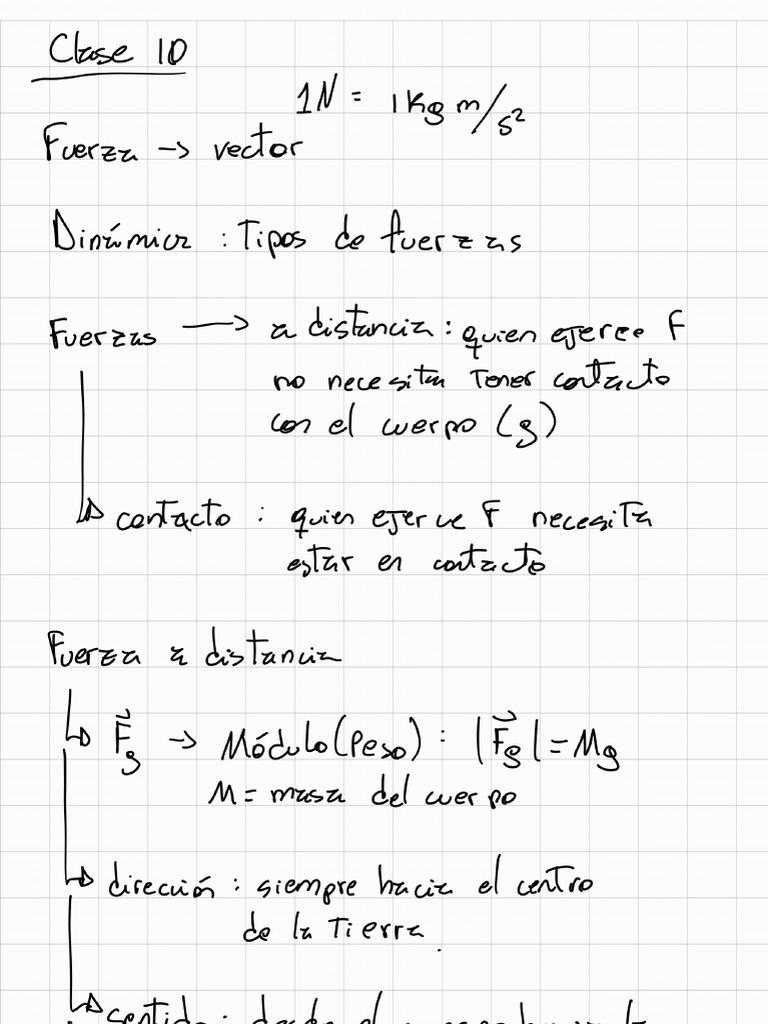 Clase 10
1N = 1 Kg m/s²
Fuerza → vector
Dinámica : Tipos de fuerzas
Fuerzas → a distancia : quien ejerce F
no necesita tener contacto
con el cuerpo (g)
contacto : quien ejerce F necesita
estar en contacto
Fuerza a distancia
F⃗g → Módulo (Peso) : |F⃗g| = Mg
M = masa del cuerpo
dirección : siempre hacia el centro
de la Tierra.
sentido : desde el